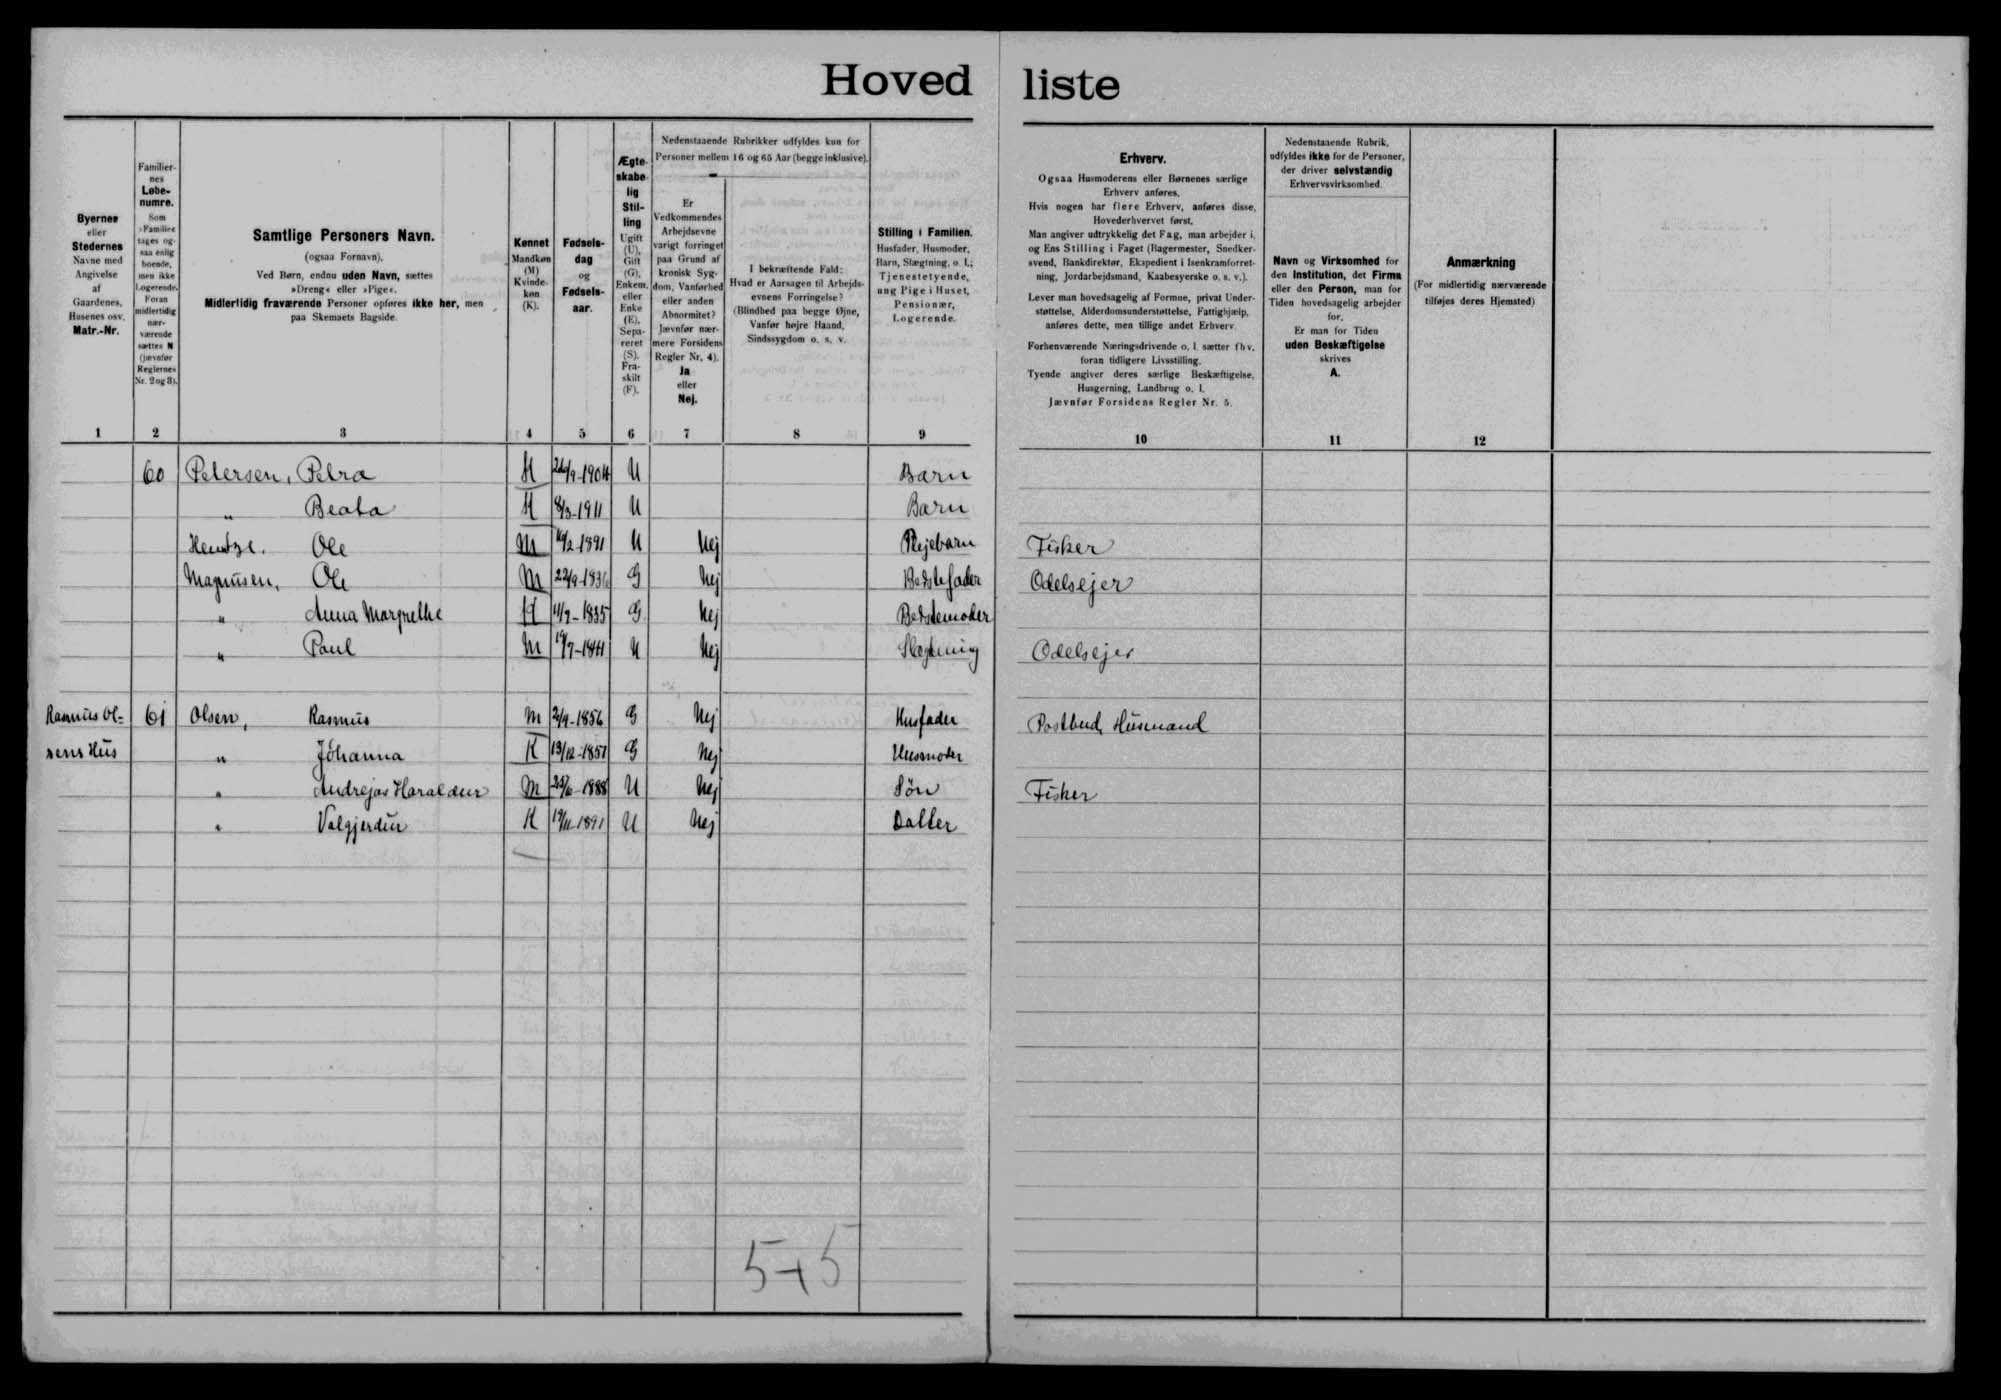 Hovedliste
Byernes eller Stedernes Navne med Angivelse af Gaardenes, Husenes osv. Matr.-Nr.
Familiernes Løbenumre. Som »Familie« tages ogsaa enlig boende, men ikke Logerende. Foran midlertidig nærværende sættes N (jævnfør Reglernes Nr. 2 og 3).
Samtlige Personers Navn. (ogsaa Fornavn). Ved Børn, endnu uden Navn, sættes »Dreng« eller »Pige«. Midlertidig fraværende Personer opføres ikke her, men paa Skemaets Bagside.
Kønnet Mandkøn (M) Kvindekøn (K).
Fødselsdag og Fødselsaar.
Ægteskabelig Stilling Ugift (U), Gift (G), Enkem. eller Enke (E), Separeret (S). Fraskilt (F).
Nedenstaaende Rubrikker udfyldes kun for Personer mellem 16 og 65 Aar (begge inklusive).
Er Vedkommendes Arbejdsevne varigt forringet paa Grund af kronisk Sygdom, Vanførhed eller anden Abnormitet? Jævnfør nærmere Forsidens Regler Nr. 4). Ja eller Nej.
I bekræftende Fald: Hvad er Aarsagen til Arbejdsevnens Forringelse? (Blindhed paa begge Øjne, Vanfør højre Haand, Sindssygdom o. s. v.
Stilling i Familien. Husfader, Husmoder, Barn, Slægtning, o. l.; Tjenestetyende, ung Pige i Huset, Pensionær, Logerende.
Erhverv.
Ogsaa Husmoderens eller Børnenes særlige Erhverv anføres.
Hvis nogen har flere Erhverv, anføres disse, Hovederhvervet først.
Man angiver udtrykkelig det Fag, man arbejder i, og Ens Stilling i Faget (Bagermester, Snedkersvend, Bankdirektør, Ekspedient i Isenkramforretning, Jordarbejdsmand, Kaabesyerske o. s. v.).
Lever man hovedsagelig af Formue, privat Understøttelse, Alderdomsunderstøttelse, Fattighjælp, anføres dette, men tillige andet Erhverv.
Forhenværende Næringsdrivende o. l. sætter fhv. foran tidligere Livsstilling.
Tyende angiver deres særlige Beskæftigelse, Husgerning, Landbrug o. l.
Jævnfør Forsidens Regler Nr. 5.
Nedenstaaende Rubrik, udfyldes ikke for de Personer, der driver selvstændig Erhvervsvirksomhed.
Navn og Virksomhed for den Institution, det Firma eller den Person, man for Tiden hovedsagelig arbejder for.
Er man for Tiden uden Beskæftigelse skrives A.
Anmærkning (For midlertidig nærværende tilføjes deres Hjemsted)
1 2 3 4 5 6 7 8 9 10 11 12
60 Petersen, Petra K 1904 U Barn
" Beata K 8/3-1911 U Barn
Hentze, Ole M 1891 U Nej Plejebarn Fisker
Magnusen, Ole M G Nej Bedstefader Odelsejer
" Anna Margrethe K 1835 G Nej Bedstemoder
" Paul M U Nej Slægtning Odelsejer
Rasmus Ol- 61 Olsen, Rasmus M 1856 G Nej Husfader Postbud, Husmand
sens Hus " Johanna K G Nej Husmoder
" Andrejas Haraldur M 1888 U Nej Søn Fisker
" Valgjerdur K 1891 U Nej Datter
5+5